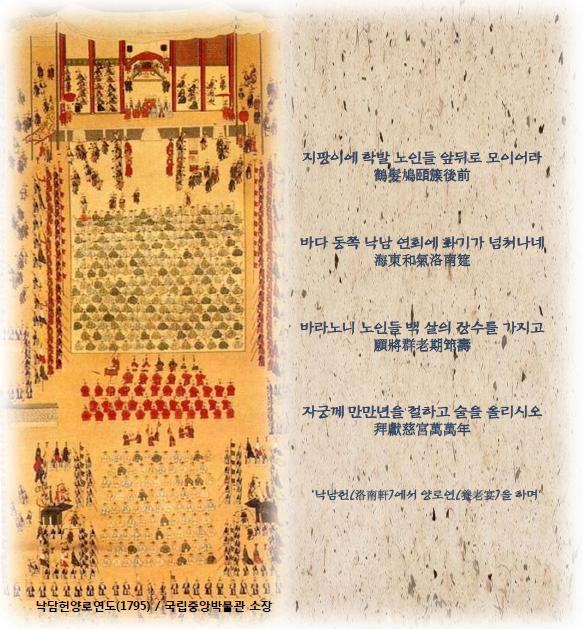 지팡이에 학발 노인들 앞뒤로 모이어라
鶴髮鳩頤簇後前
바다 동쪽 낙남 연회에 화기가 넘쳐나네
海東和氣洛南筵
바라노니 노인들 백 살의 장수를 가지고
願將群老期筇壽
자궁께 만만년을 절하고 술을 올리시오
拜獻慈宮萬萬年
'낙남헌(洛南軒)에서 양로연(養老宴)을 하며'
낙담헌양로연도(1795) / 국립중앙박물관 소장